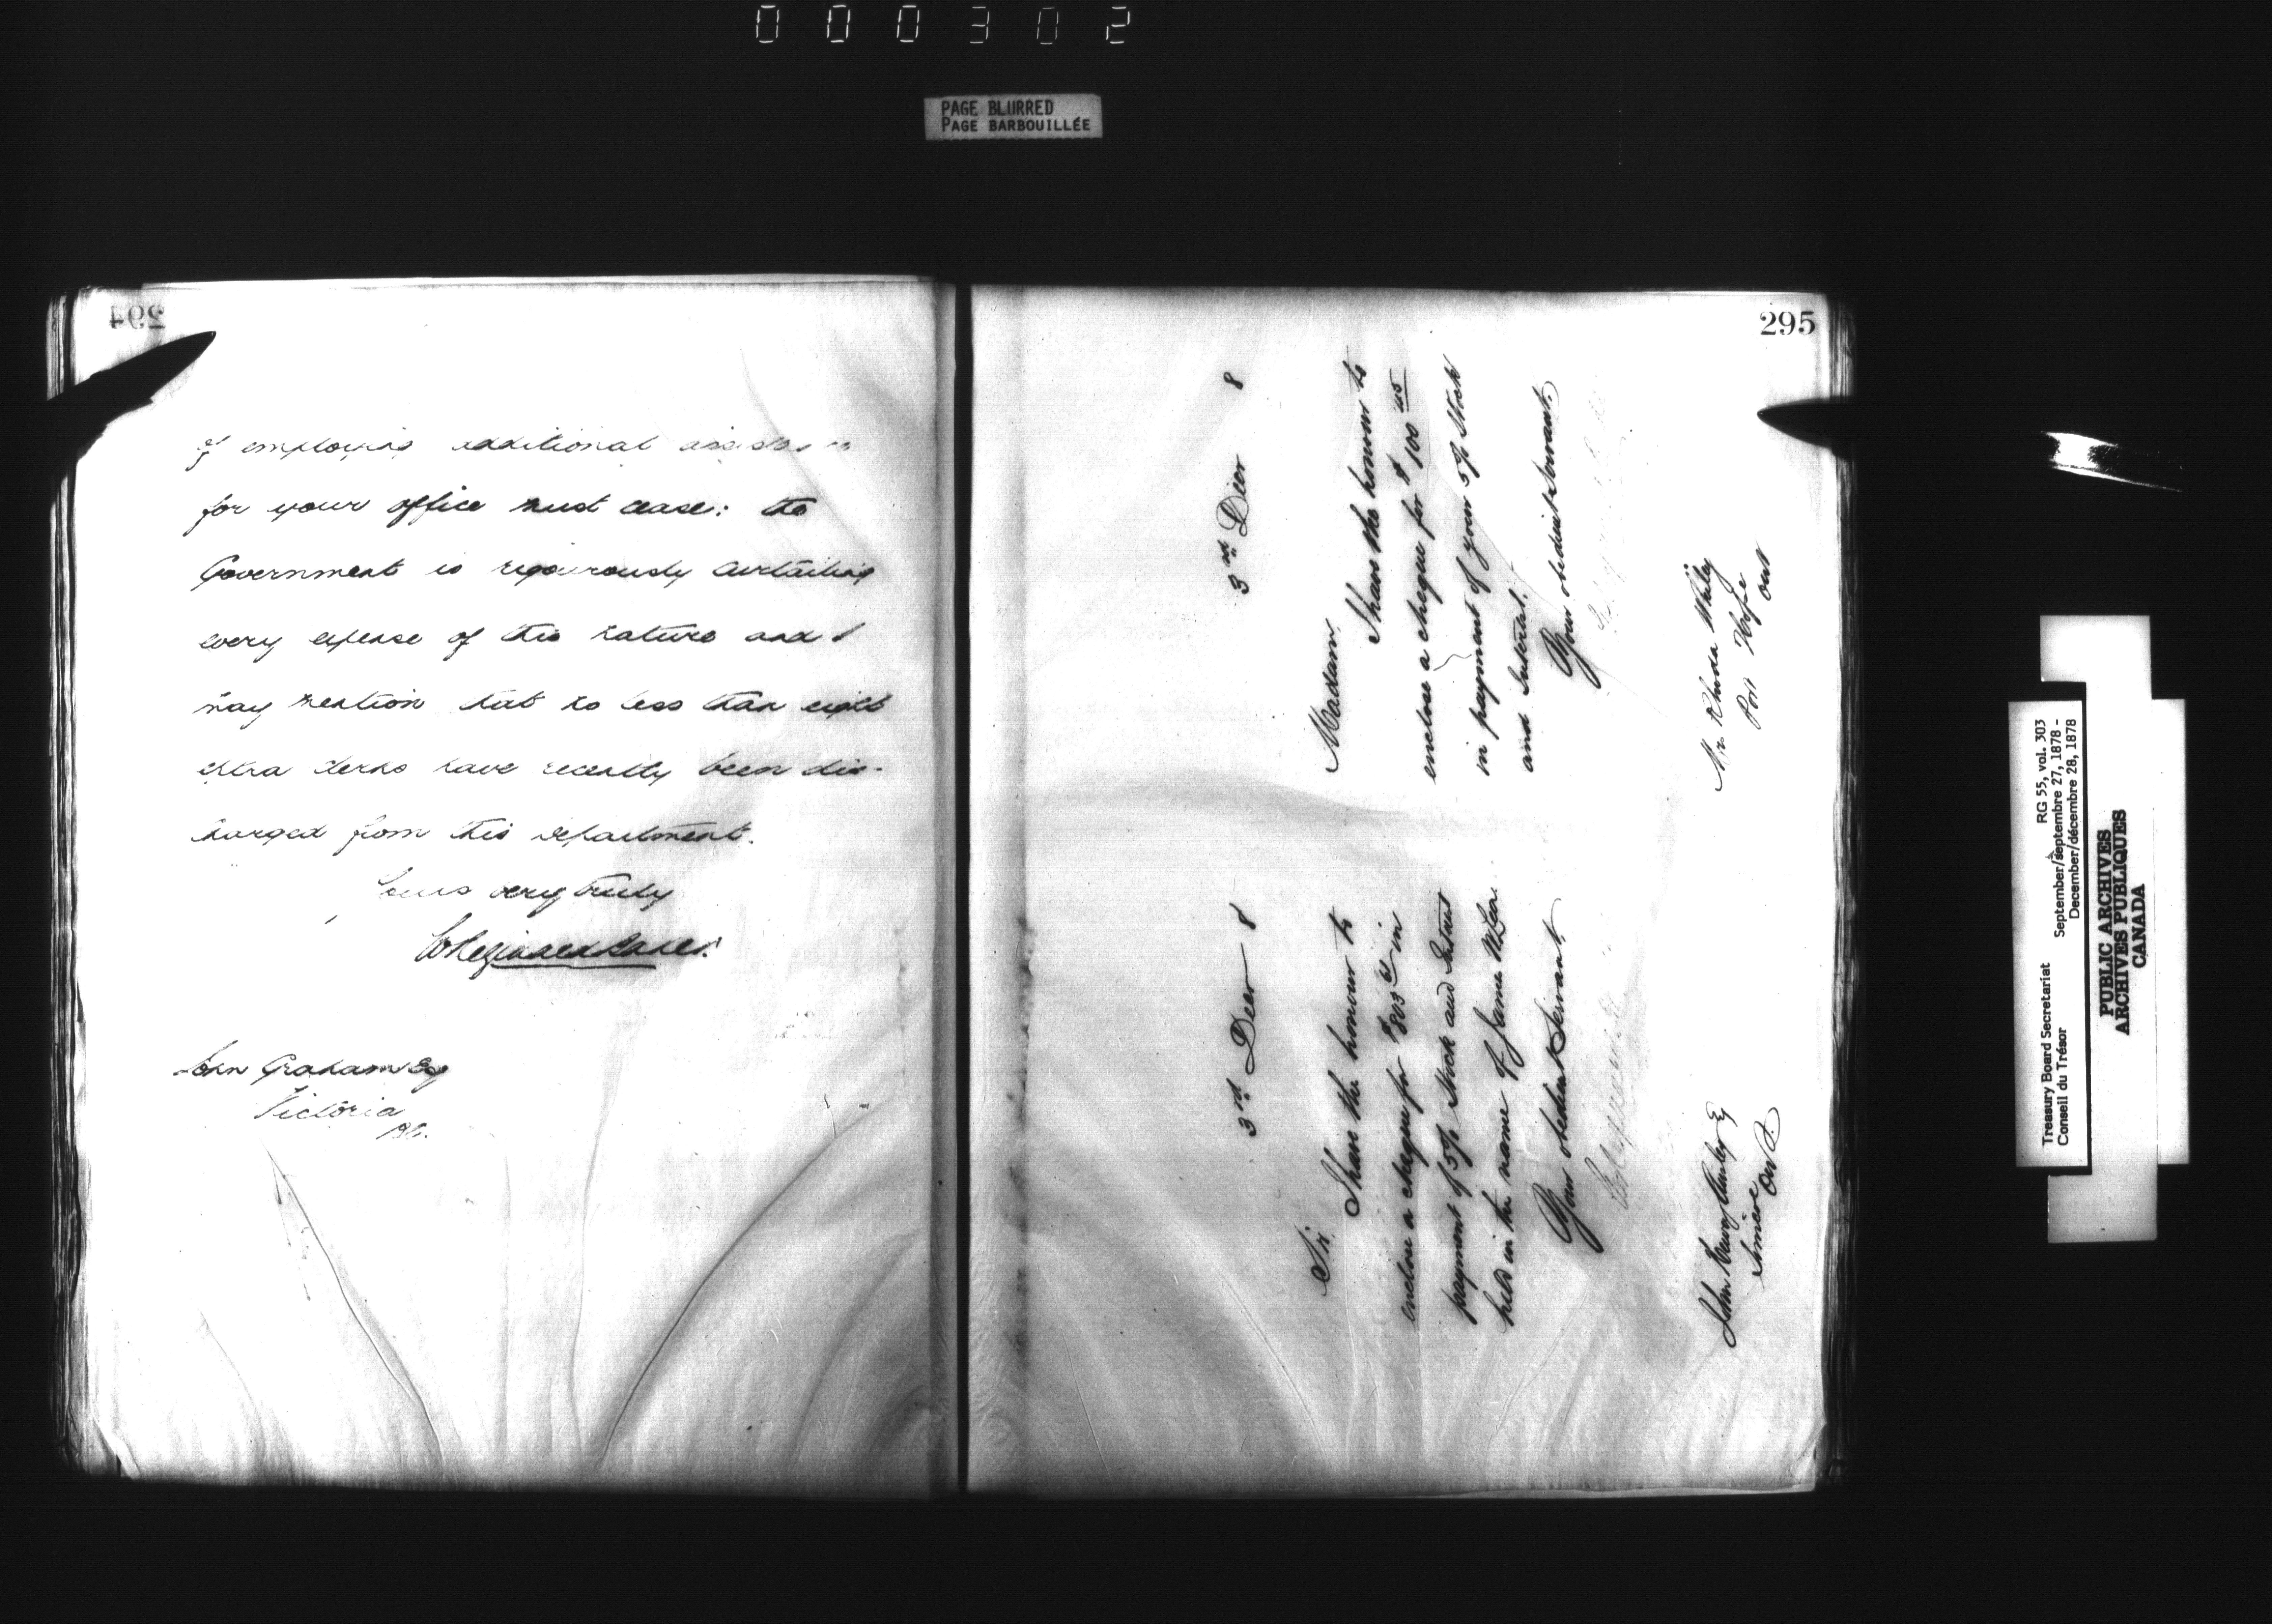 000302
PAGE BLURRED
PAGE BARBOUILLÉE
294
of employing additional
for your office must cease: the
Government is rigourously curtailing
every expense of this nature and I
may mention that no less than eight
extra clerks have recently been dis-
charged from this department.
Yours very truly
John Graham Esq
Victoria
B.C.
295
3rd Decr 8
Madam,
I have the honour to
enclose a cheque for $100
in payment of your 5% Stock
and Interest.
Your obedient Servant,
Mrs. Rhoda
Port Hope
Ont
3rd Decr 8
Sir,
I have the honour to
enclose a cheque for $803 in
payment of 5% Stock and Interest
held in the name of James
Your obedient Servant,
John
Simcoe
Ont.
Treasury Board Secretariat RG 55, vol. 303
Conseil du Trésor September/septembre 27, 1878 -
December/décembre 28, 1878
PUBLIC ARCHIVES
ARCHIVES PUBLIQUES
CANADA